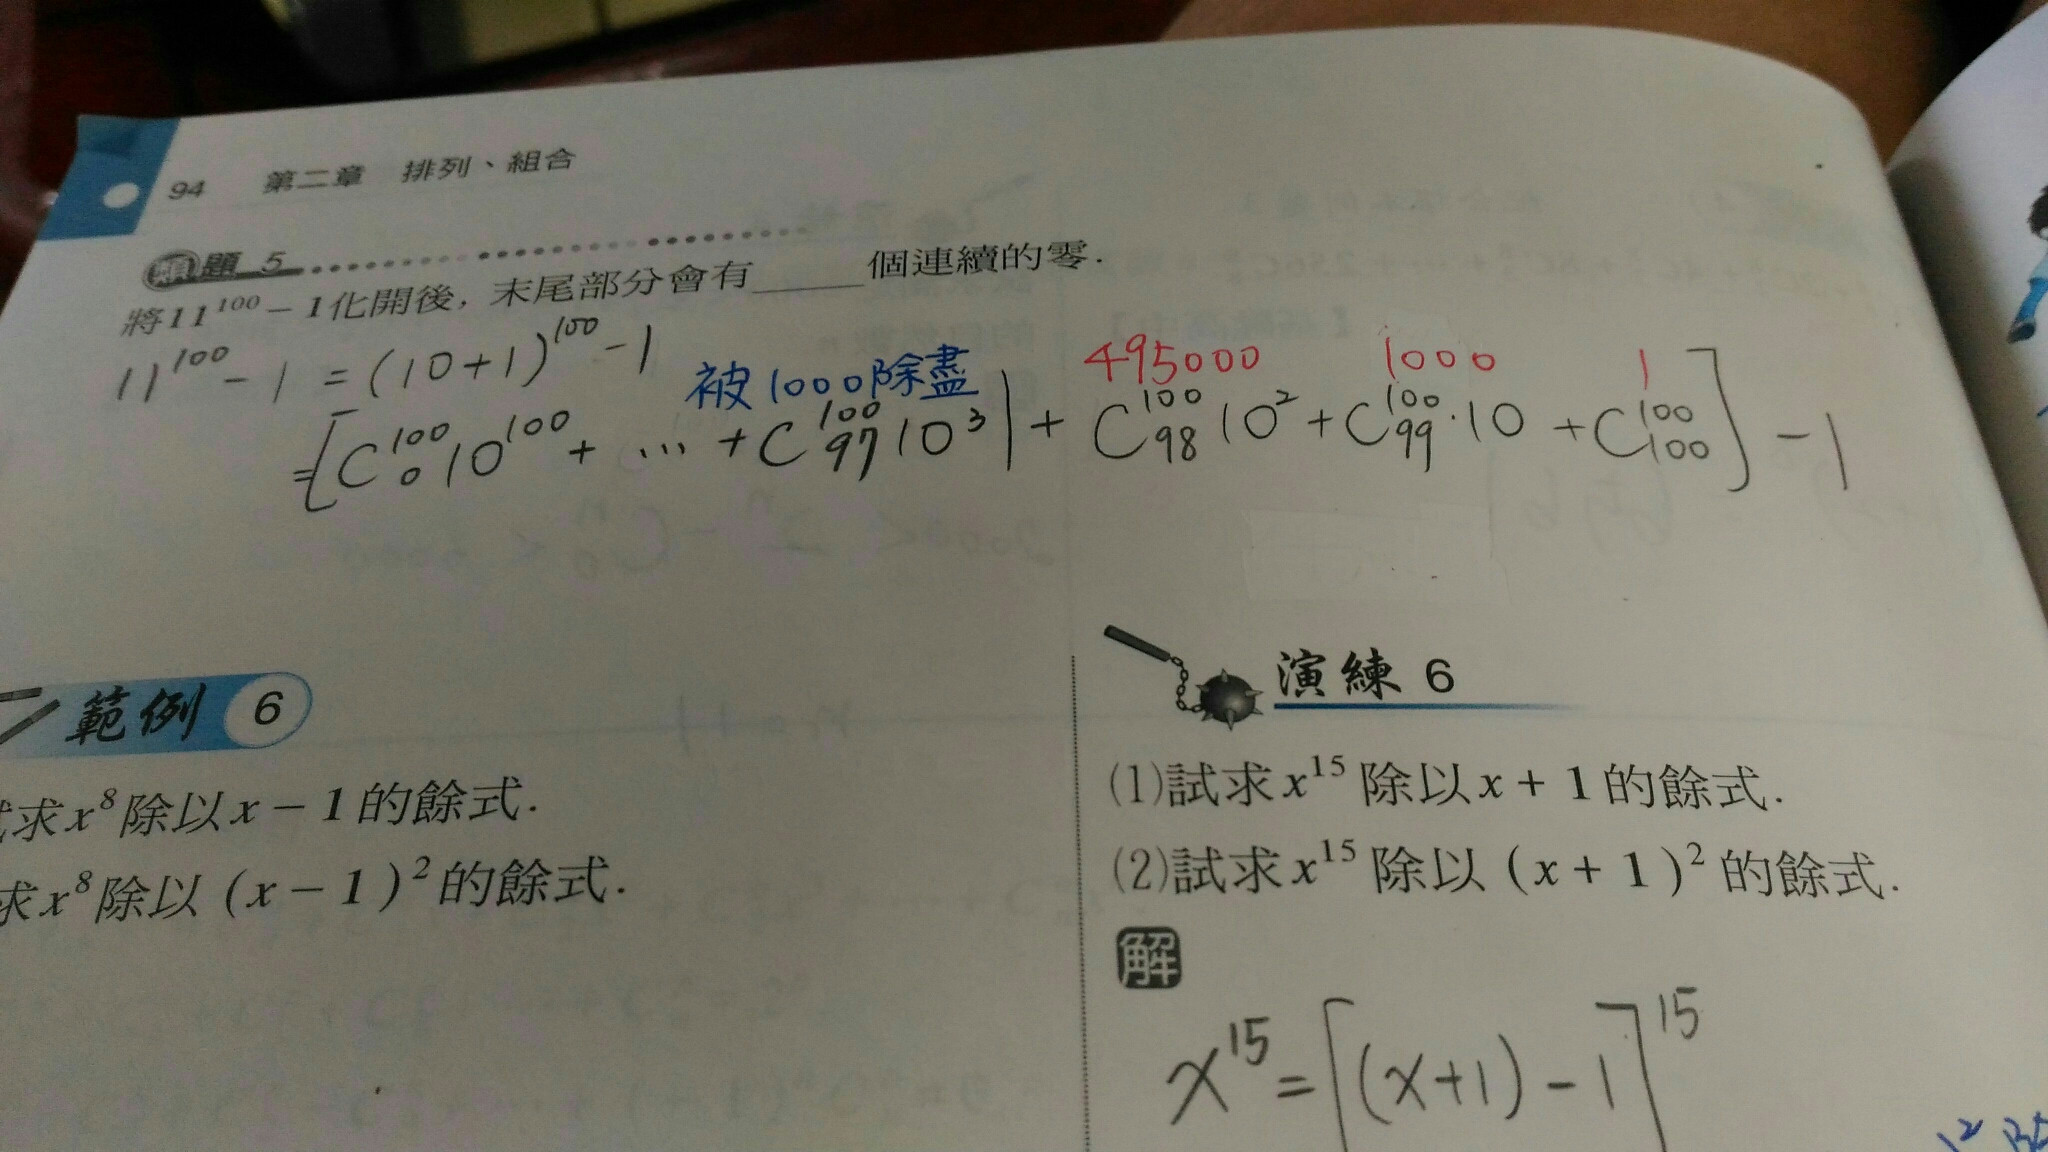 94 第二章 排列、組合
類題 5
將11¹⁰⁰－1化開後, 末尾部分會有_____個連續的零.
11¹⁰⁰－1 = (10+1)¹⁰⁰－1
被1000除盡 495000 1000 1
=[C¹⁰⁰₀10¹⁰⁰ + … + C¹⁰⁰₉₇10³| + C¹⁰⁰₉₈10² + C¹⁰⁰₉₉·10 + C¹⁰⁰₁₀₀]－1
範例 6
求x⁸除以x－1的餘式.
求x⁸除以(x－1)²的餘式.
演練 6
(1)試求x¹⁵除以x+1的餘式.
(2)試求x¹⁵除以(x+1)²的餘式.
解
x¹⁵=[(x+1)－1]¹⁵